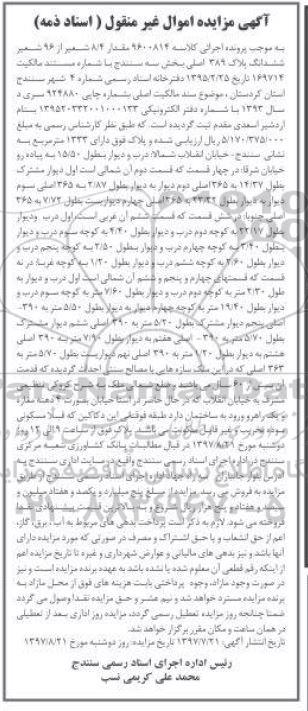 آگهی مزایده اموال غیر منقول ( اسناد ذمه)
به موجب پرونده اجرائی کلاسه ۹۶۰۰۸۱۴ مقدار ۸/۴ شعیر از ۹۶ شعیر
ششدانگ پلاک ۳۸۹ اصلی بخش سه سنندج با شماره مستند مالکیت
۱۶۹۷۱۴ تاریخ ۱۳۹۵/۲/۲۵ دفترخانه اسناد رسمی شماره ۴ شهر سنندج
استان کردستان ، موضوع سند مالکیت اصلی بشماره چاپی ۹۲۴۸۸۰ سری د
سال ۱۳۹۳ با شماره دفتر الکترونیکی ۱۳۹۵۲۰۳۳۲۰۰۱۰۰۰۱۳۳ بنام
اردشیر اسعدی مقدم ثبت گردیده است. که طبق نظر کارشناس رسمی به مبلغ
۵/۱۷۰/۳۷۵/۰۰۰ ریال ارزیابی شده و پلاک فوق دارای ۱۳۳۳ مترمربع به
نشانی سنندج- خیابان انقلاب شمالا: درب و دیوار بطول ۱۵/۵۰ به پیاده رو
خیابان شرقا: در چهار قسمت که قسمت دوم آن شمالی است اول دیوار مشترک
بطول ۱۴/۳۷ به ۳۶۵ اصلی دوم دیوار به دیوار بطول ۲/۸۷ به ۳۶۵ اصلی سوم
دیوار به دیوار بطول ۳۳/۳۲ به ۳۶۵ اصلی چهارم دیواریست بطول ۷/۷۲ به ۳۶۵
اصلی جنوبا: در شش قسمت که قسمت ششم آن غربی است، اول درب ودیوار
بطول ۲۲/۱۷ به کوچه دوم درب و دیوار بطول ۴/۴۰ به کوچه سوم درب و دیوار
بطول ۳/۴۰ به کوچه چهارم درب و دیوار بطول ۲/۵۰ به کوچه پنجم درب و
دیوار بطول ۲/۶۰ به کوچه ششم درب و دیوار بطول ۱/۲۰ به کوچه غربا: در نه
قسمت که قسمتهای چهارم و پنجم و ششم آن شمالی است اول درب و دیوار به
طول ۲/۳۰ متر به کوچه دوم درب و دیوار بطول ۷/۶۰ متر به کوچه سوم درب و
دیوار بطول ۱۹/۴۰ متر به کوچه چهارم دیوار به دیوار بطول ۵/۵۰ متر به ۳۹۰-
اصلی پنجم دیوار مشترک بطول ۵/۲۰ متر به ۳۹۰ اصلی ششم دیوار مشترک
بطول ۵/۷۰ متر به ۳۹۰- اصلی هفتم به دیوار بطول ۷/۹۰ متر به ۳۹۰ اصلی
هشتم به دیوار بطول ۱/۲۰ متر به ۳۹۰ اصلی نهم دیواریست بطول ۵/۷۰ متر به
۳۶۳ اصلی که در این ملک سازه هایی با مصالح سنتی احداث گردیده که قدمت
مشرف به خیابان انقلاب که در حال حاضر در راستا خیابان بصورت ۴ دهنه مغازه
و یک راهرو ورود به ساختمان دارد طبقه فوقانی این دکاکین که قبلا مسکونی
بوده تخریب و غیر قابل سکونت می باشد. پلاک فوق از ساعت ۹ الی ۱۲ روز
دوشنبه مورخ ۱۳۹۷/۸/۲۱ در قبال مطالبات بانک کشاورزی شعبه مرکزی
سنندج در اداره اجرای اسناد رسمی سنندج واقع در سایت اداری سنندج به
فروخته می شود. لازم به ذکر است پرداخت بدهی های مربوط به آب، برق، گاز،
اعم از حق انشعاب و یا حق اشتراک و مصرف در صورتی که مورد مزایده دارای
آنها باشد و نیز بدهی های مالیاتی و عوارض شهرداری و غیره تا تاریخ مزایده اعم
از اینکه رقم قطعی آن معلوم شده یا نشده باشد به عهده برنده مزایده است و نیز
در صورت وجود مازاد، وجوه پرداختی بابت هزینه های فوق از محل مازاد به
برنده مزایده مسترد خواهد شد و نیم عشر و حق مزایده نقدا وصول می گردد
ضمنا چنانچه روز مزایده تعطیل رسمی گردد، مزایده روز اداری بعد از تعطیلی
در همان ساعت و مکان مقرر برگزار خواهد شد.
تاریخ انتشار آگهی: ۱۳۹۷/۷/۲۱ تاریخ مزایده: روز دوشنبه مورخ ۱۳۹۷/۸/۲۱
رئیس اداره اجرای اسناد رسمی سنندج
محمد علی کریمی نسب